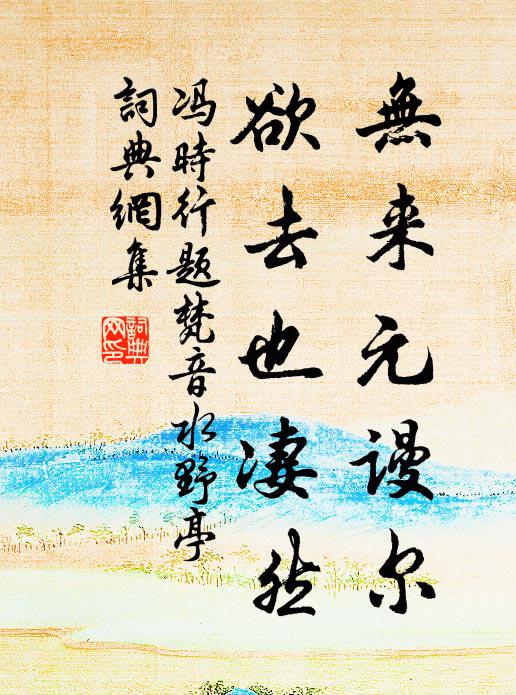 無来元謾尔
欲去也凄然
冯時行题梵音水野亭
詞典網集
詞典
网印